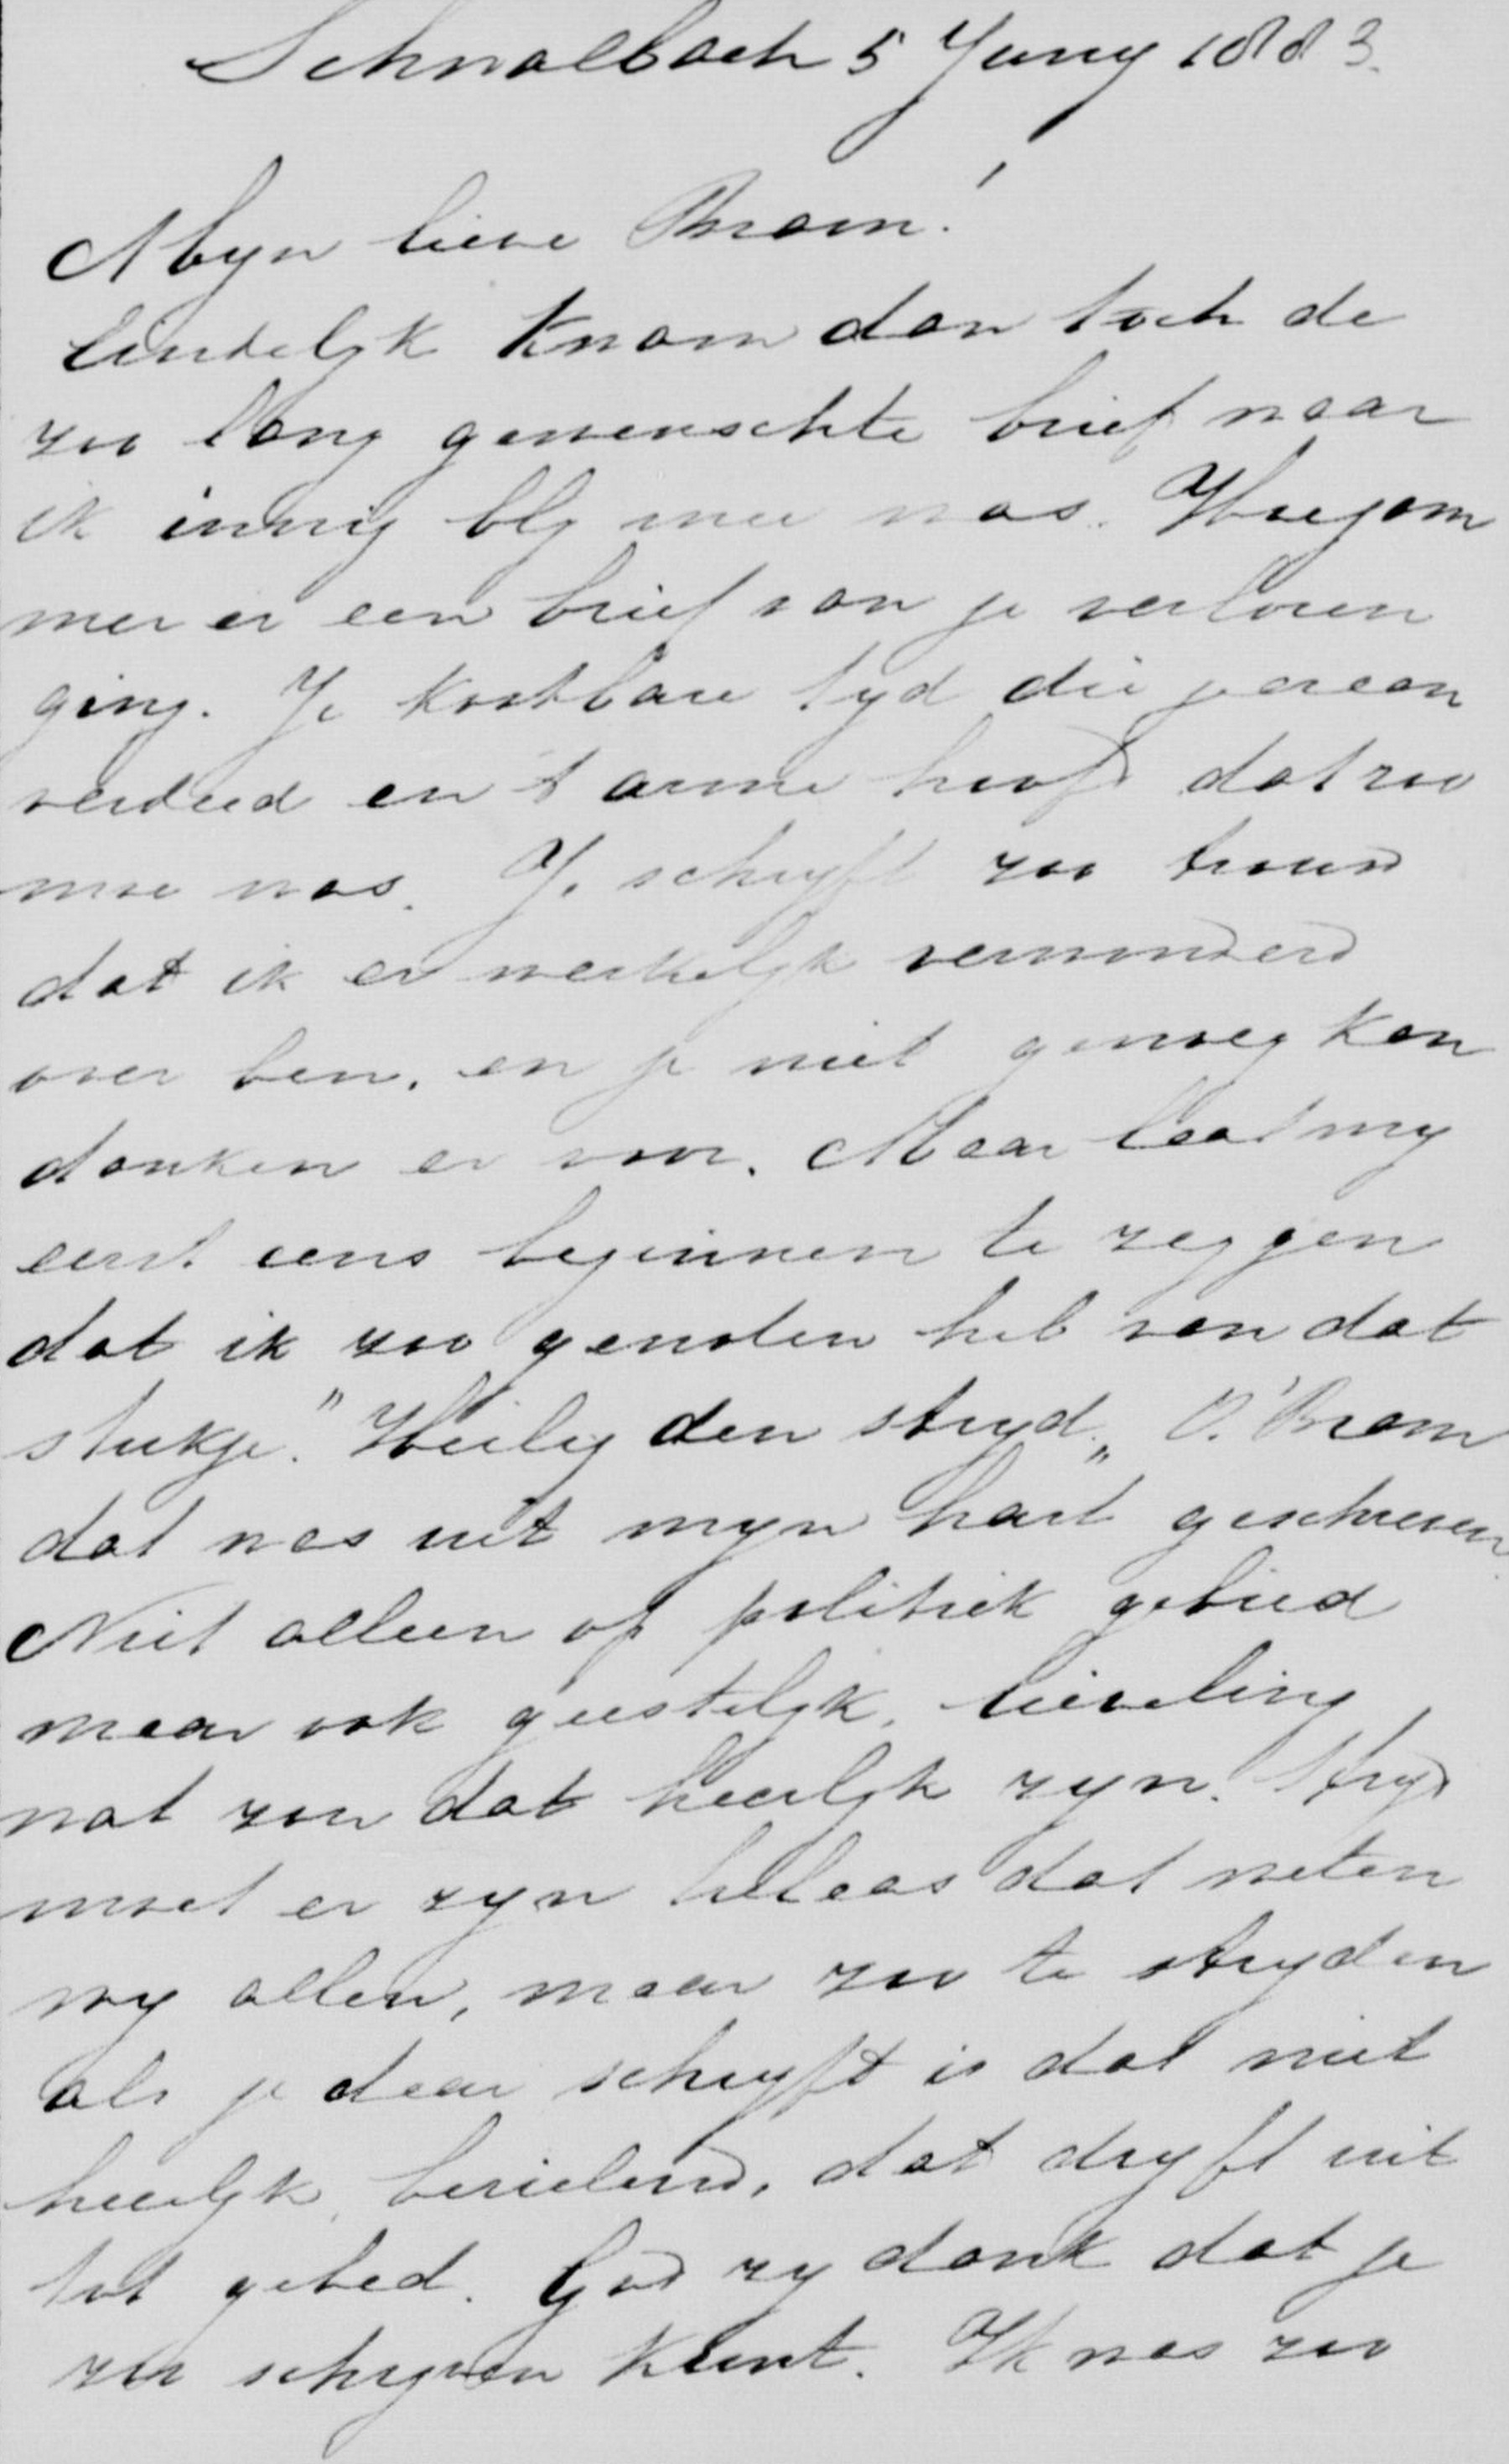 Schwalbach 5 Juny 1883.
Myn lieve Bram!
Eindelyk kwam dan toch de
zoo lang gewenschte brief waar
ik innig bly mee was. Hoe jam
mer er een brief van je verloren
ging. Je kostbare tyd die je er aan
verdeed en 't arme hoofd dat zoo
moe was. Je schryft zoo trouw
dat ik er werkelyk verwonderd
over ben, en je niet genoeg kan
danken er voor. Maar laat my
eerst eens beginnen te zeggen
dat ik zoo genoten heb van dat
stukje. "Heilig den stryd„ O! Bram
dat was uit myn hart geschreven
Niet alleen op politiek gebied
maar ook geestelyk, lieveling,
wat zou dat heerlyk zyn. Stryd
moet er zyn helaas dat weten
wy allen, maar zoo te stryden
als je daar schryft is dat niet
heerlyk, bezielend, dat dryft uit
tot gebed. God zy dank dat je
zoo schryven kunt. Ik was zoo